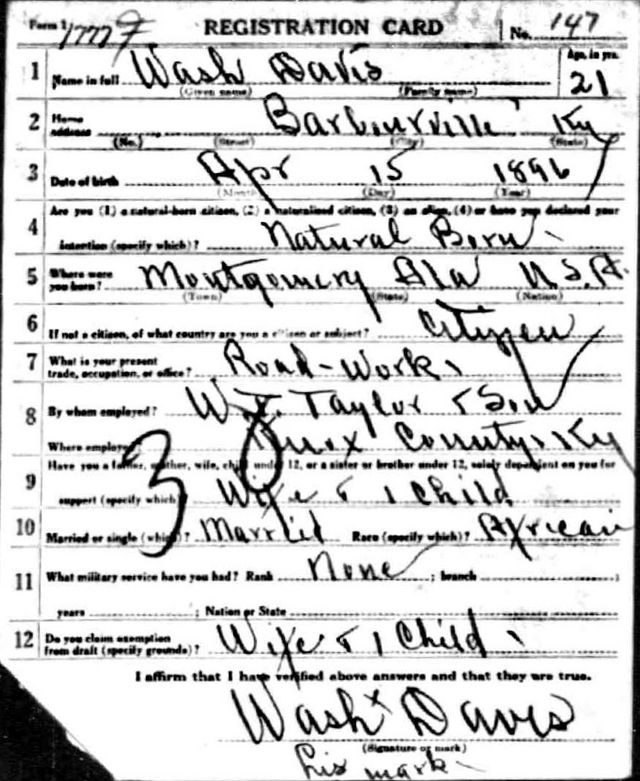 Form 1 1777 REGISTRATION CARD No. 147
1 Name in full Wash Davis Age, in yrs. 21
(Given name) (Family name)
2 Home address Barbourville Ky
(No.) (Street) (City) (State)
3 Date of birth Apr 15 1896
(Month) (Day) (Year)
4 Are you (1) a natural-born citizen, (2) a naturalized citizen, (3) an alien, (4) or have you declared your
intention (specify which)? Natural Born
5 Where were you born? Montgomery Ala U.S.A.
(Town) (State) (Nation)
6 If not a citizen, of what country are you a citizen or subject? Citizen
7 What is your present trade, occupation, or office? Road-Work
8 By whom employed? Taylor & Son
Where employed Knox County, Ky
9 Have you a father, mother, wife, child under 12, or a sister or brother under 12, solely dependent on you for
support (specify which) Wife & 1 Child
3
10 Married or single (which)? Married Race (specify which)? African
11 What military service have you had? Rank None ; branch ;
years ; Nation or State
12 Do you claim exemption from draft (specify grounds)? Wife & 1 Child
I affirm that I have verified above answers and that they are true.
Wash x Davis
(Signature or mark)
his mark